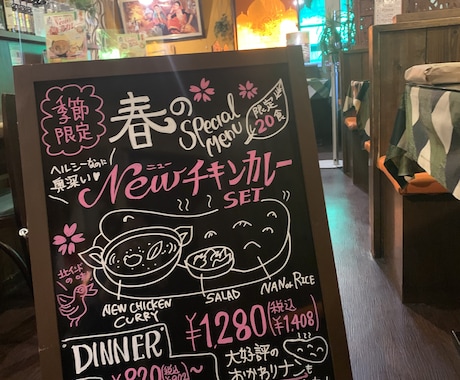 季節
限定
春の
Special
Menu
限定
20食
ヘルシーなのに
奥深い♥
ニュー
Newチキンカレー
SET
北インドの
NEW CHICKEN
CURRY
SALAD
NAN or RICE
¥1280(税込
¥1408)
DINNER
大好評の
おかわりナンも